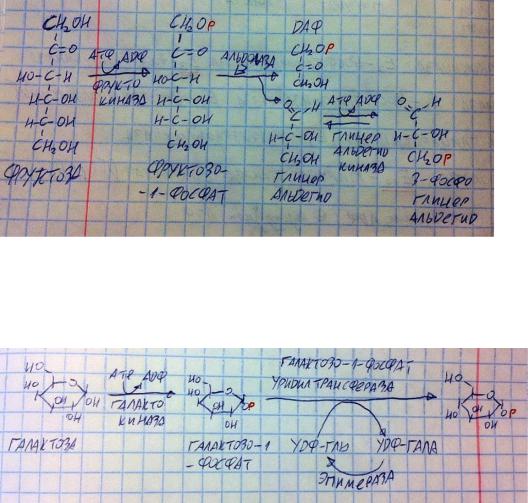 CH₂OH CH₂OP ДАФ
C=O АТФ АДФ C=O АЛЬДОЛАЗА CH₂OP
HO-C-H ФРУКТО HO-C-H B C=O
H-C-OH КИНАЗА H-C-OH CH₂OH
H-C-OH H-C-OH O H АТФ АДФ O H
CH₂OH CH₂OH C C
H-C-OH ГЛИЦЕР H-C-OH
ФРУКТОЗА ФРУКТОЗО- CH₂OH АЛЬДЕГИД CH₂OP
-1-ФОСФАТ ГЛИЦЕР КИНАЗА 3-ФОСФО
АЛЬДЕГИД ГЛИЦЕР
АЛЬДЕГИД
ГАЛАКТОЗО-1-ФОСФАТ
HO АТФ АДФ HO УРИДИЛТРАНСФЕРАЗА HO
HO O HO O HO O
OH OH ГАЛАКТО OH OP OH OP
OH КИНАЗА OH OH
ГАЛАКТОЗА ГАЛАКТОЗО-1 УДФ-ГЛЮ УДФ-ГАЛА
-ФОСФАТ ЭПИМЕРАЗА